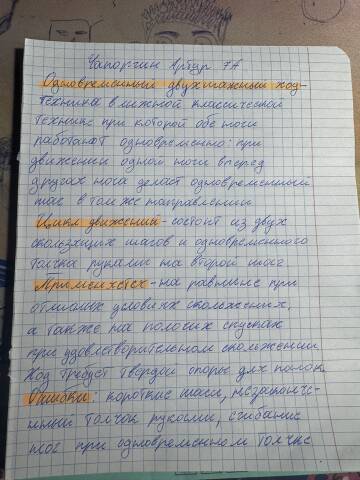 Чапоргин Артур 7А
Одновременный двухшажный ход-
техника в лыжной классической
технике при которой обе ноги
работают одновременно: при
движении одной ноги вперед
другая нога делает одновременный
шаг в том же направлении
Цикл движения - состоит из двух
скользящих шагов и одновременного
толчка руками на второй шаг
Применяется - на равнине при
отличных условиях скольжения,
а также на пологих спусках
при удовлетворительном скольжении
Ход требует твердой опоры для палок
Ошибки: короткие шаги, незакончен-
ный толчок руками, сгибание
ног при одновременном толчке